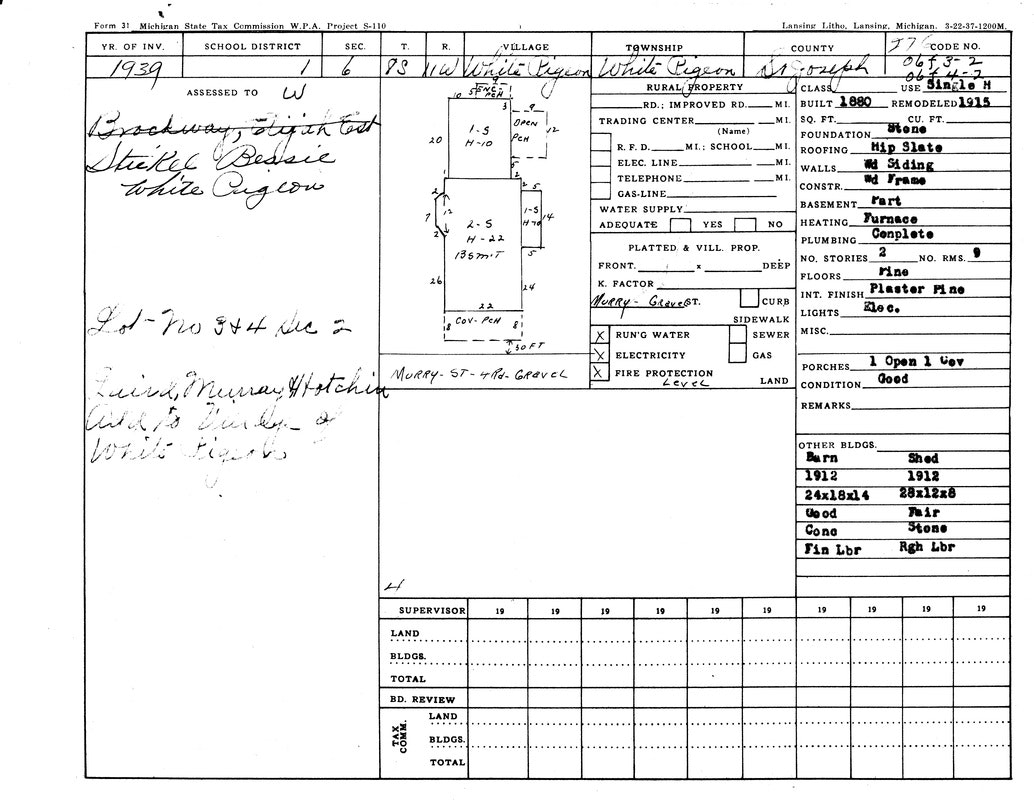 Form 31 Michigan State Tax Commission W.P.A. Project S-110
Lansing Litho, Lansing, Michigan. 3-22-37-1200M.
YR. OF INV. SCHOOL DISTRICT SEC. T. R. VILLAGE TOWNSHIP COUNTY CODE NO.
1939 1 6 8S 11W White Pigeon White Pigeon St Joseph 06f 3-2
06f 4-2
ASSESSED TO W
Brockway, Elijah Est
Stickel Bessie
White Pigeon
Lot-No 3&4 Sec 2
Laird, Murray & Hotchin
Add to Village of
White Pigeon
10 5 ENC PCH
3 9
20 1-S H-10 OPEN PCH 12
5
1 2
2 2 5
7 12 1-S 14
2 2-S
H-22
BSMT
5
26 24
22
8 COV-PCH 8
30 FT
MURRY-ST-4Rd-GRAVEL
4
RURAL PROPERTY
RD.; IMPROVED RD. MI.
TRADING CENTER MI.
(Name)
R. F. D. MI.; SCHOOL MI.
ELEC. LINE MI.
TELEPHONE MI.
GAS-LINE
WATER SUPPLY
ADEQUATE YES NO
PLATTED & VILL. PROP.
FRONT. x DEEP
K. FACTOR
Murry-Gravel ST. CURB
SIDEWALK
X RUN'G WATER SEWER
X ELECTRICITY GAS
X FIRE PROTECTION
Level LAND
CLASS USE Single H
BUILT 1880 REMODELED 1915
SQ. FT. CU. FT.
FOUNDATION Stone
ROOFING Hip Slate
WALLS Wd Siding
CONSTR. Wd Frame
BASEMENT Part
HEATING Furnace
PLUMBING Complete
NO. STORIES 2 NO. RMS. 9
FLOORS Pine
INT. FINISH Plaster Pine
LIGHTS Elec.
MISC.
PORCHES 1 Open 1 Cov
CONDITION Good
REMARKS
OTHER BLDGS.
Barn Shed
1912 1912
24x18x14 28x12x8
Good Fair
Conc Stone
Fin Lbr Rgh Lbr
SUPERVISOR 19 19 19 19 19 19 19 19 19 19
LAND
BLDGS.
TOTAL
BD. REVIEW
TAX COMM.
LAND
BLDGS.
TOTAL